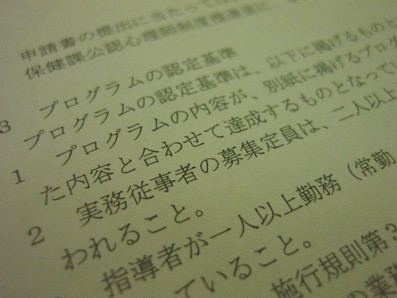 申請書の提出に当たっては
保健課公認心理師制度推進室に、
3 プログラムの認定基準
プログラムの認定基準は、以下に掲げるものと
1 プログラムの内容が、別紙に掲げるプログ
た内容と合わせて達成するものとなってい
2 実務従事者の募集定員は、二人以上
われること。
指導者が一人以上勤務（常勤
ていること。
施行規則第3
の業務